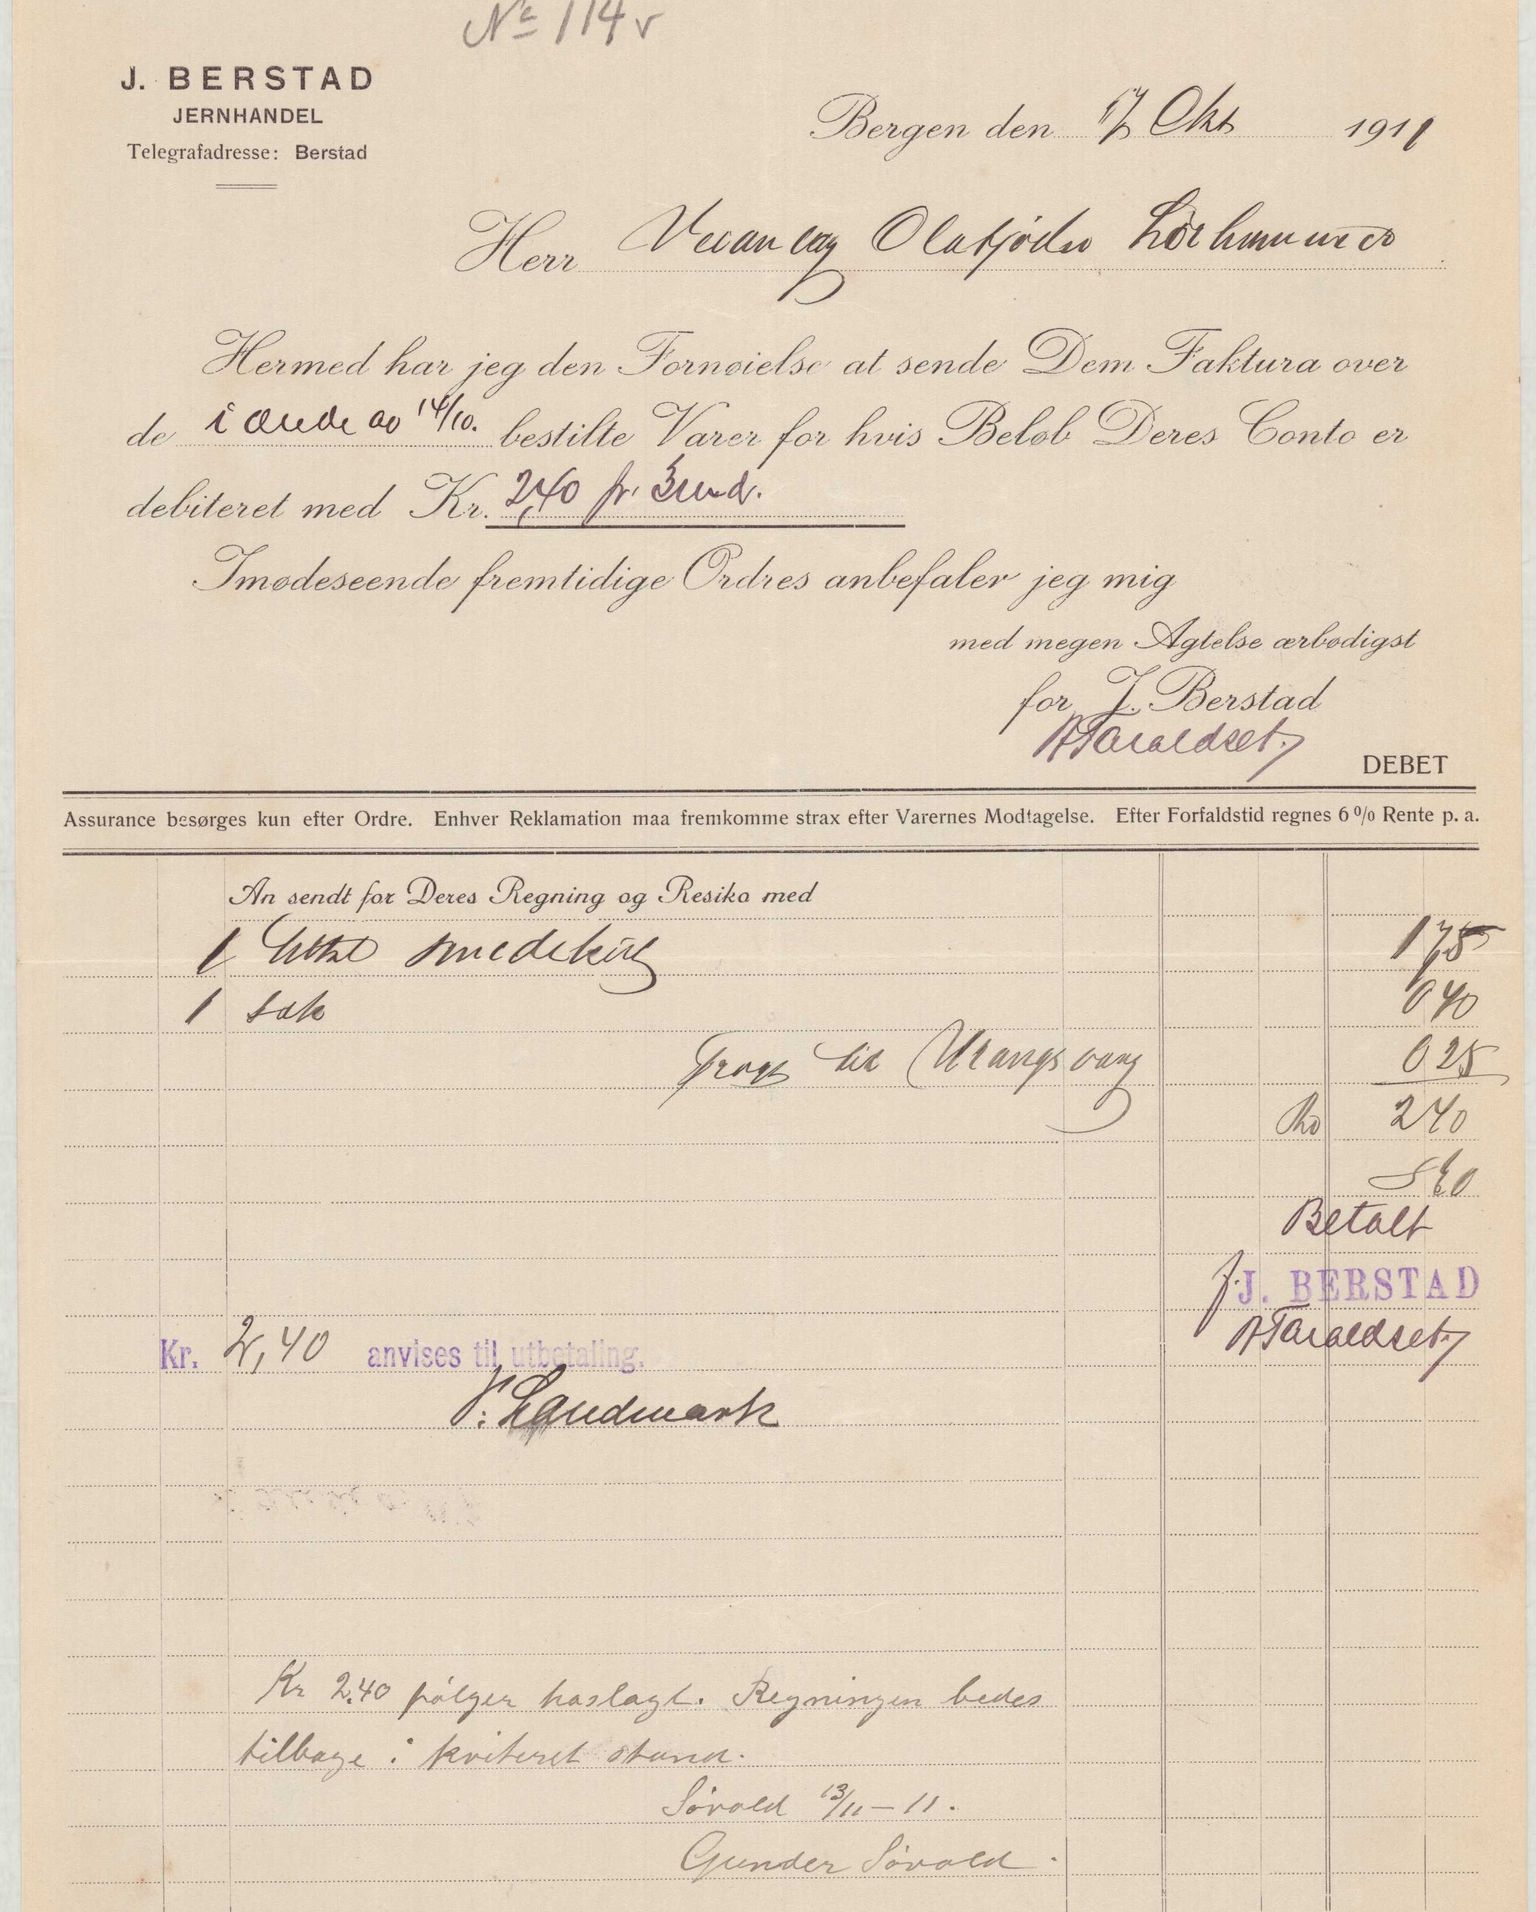 No 114
J. BERSTAD
JERNHANDEL
Telegrafadresse: Berstad
Bergen den 17 Okt 1911
Herr Olafjöden Lörhammer
Hermed har jeg den Fornøielse at sende Dem Faktura over
de i ærede av 14/10. bestilte Varer for hvis Beløb Deres Conto er
debiteret med Kr. 2,40 pr.
Imødeseende fremtidige Ordres anbefaler jeg mig
med megen Agtelse ærbødigst
for J. Berstad
A Taraldset.
DEBET
Assurance besørges kun efter Ordre. Enhver Reklamation maa fremkomme strax efter Varernes Modtagelse. Efter Forfaldstid regnes 6% Rente p. a.
An sendt for Deres Regning og Resiko med
1 smedekul 1 75
1 sæk 0 40
Fragt til Utangsvaag 0 25
Kr 2 40
Betalt
f. J. BERSTAD
A Taraldset.
Kr. 2,40 anvises til utbetaling.
Landmark
Kr 2.40 følger hoslagt. Regningen bedes
tilbage i kviteret stand.
Søvold 13/11 - 11.
Gunder Søvold.